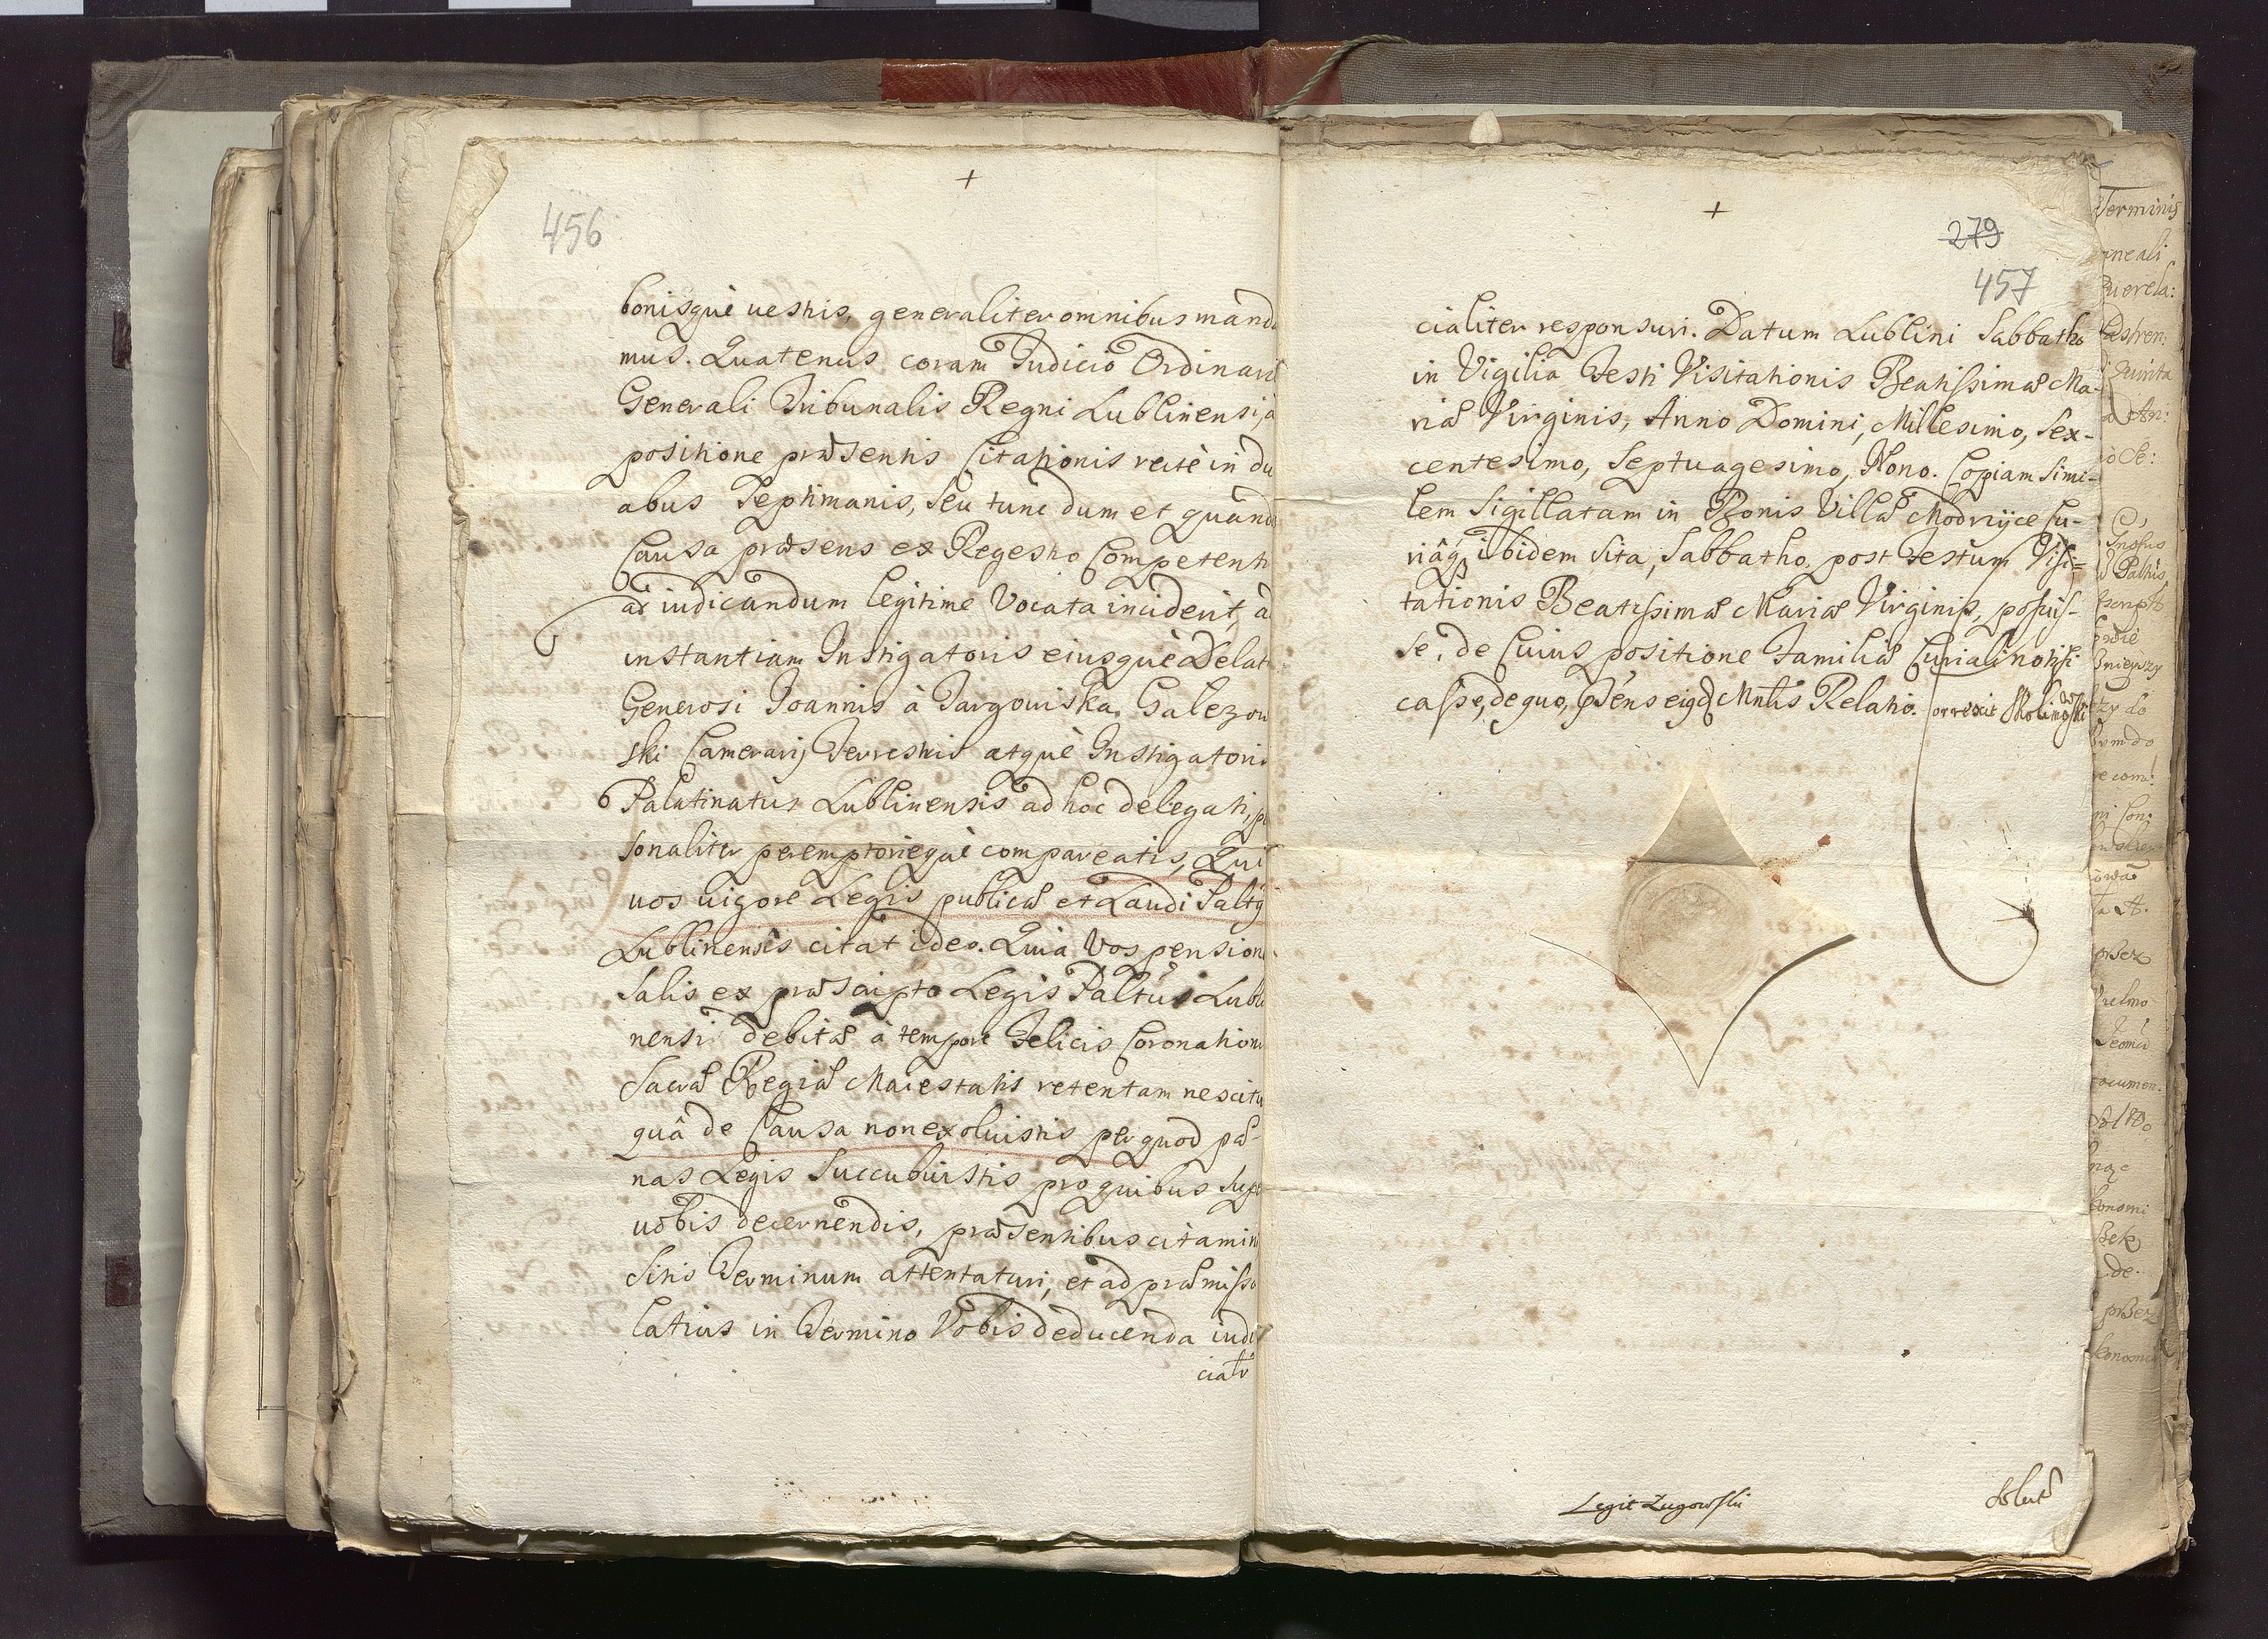 +
456
bonisquè uestris, generaliter omnibus manda
mus. Quatenus coram Iudicio Ordinario
Generali Tribunalis Regni Lublinensi, à
positione præsentis Citationis rectè in du
abus Septimanis, seu tunc dum et quando
Causa præsens ex Regestro Competenti
ad iudicandum legitime Vocata inciderit, ad
instantiam Instigatoris eiusquè Delat
Generosi Ioannis à Targowiska Gałęzow
ski Camerarij Terrestris atquè Instigatoris
Palatinatus Lublinensis ad hoc delegati, per
sonaliter peremptoriequè compareatis, Qui
uos uigore Legis publicæ et Laudi Paltus
Lublinensis citat ideo. Quia Vos pension
salis ex præscripto Legis Paltus Lubli
nensi debitæ à tempore Felicis Coronationis
Sacræ Regiæ Maiestatis retentam nescitur
quâ de Causa non exoluistis per quod pæ-
nas Legis Succubuistis pro quibus super
uobis decernendis, præsentibus citamini
sitis Terminum attentaturi, et ad præmissa
latius in Termino Vobis deducenda iudi
cialr
+
279
457
cialiter responsuri. Datum Lublini Sabbatho
in Vigilia Festi Visitationis Beatissimæ Ma-
riæ Virginis, Anno Domini, Millesimo, Sex-
centesimo, Septuagesimo, Nono. Copiam simi-
lem Sigillatam in Bonis Villæ Modryce Cu-
riâq ibidem sita, Sabbatho post Festum Visi-
tationis Beatissimæ Mariæ Virginis, posuis-
se, de Cuius positione Familiæ Curiali notifi
casse, de quo, pñs eigd Mntls Relatio. Correxit Skolimowski
Legit Ługowski